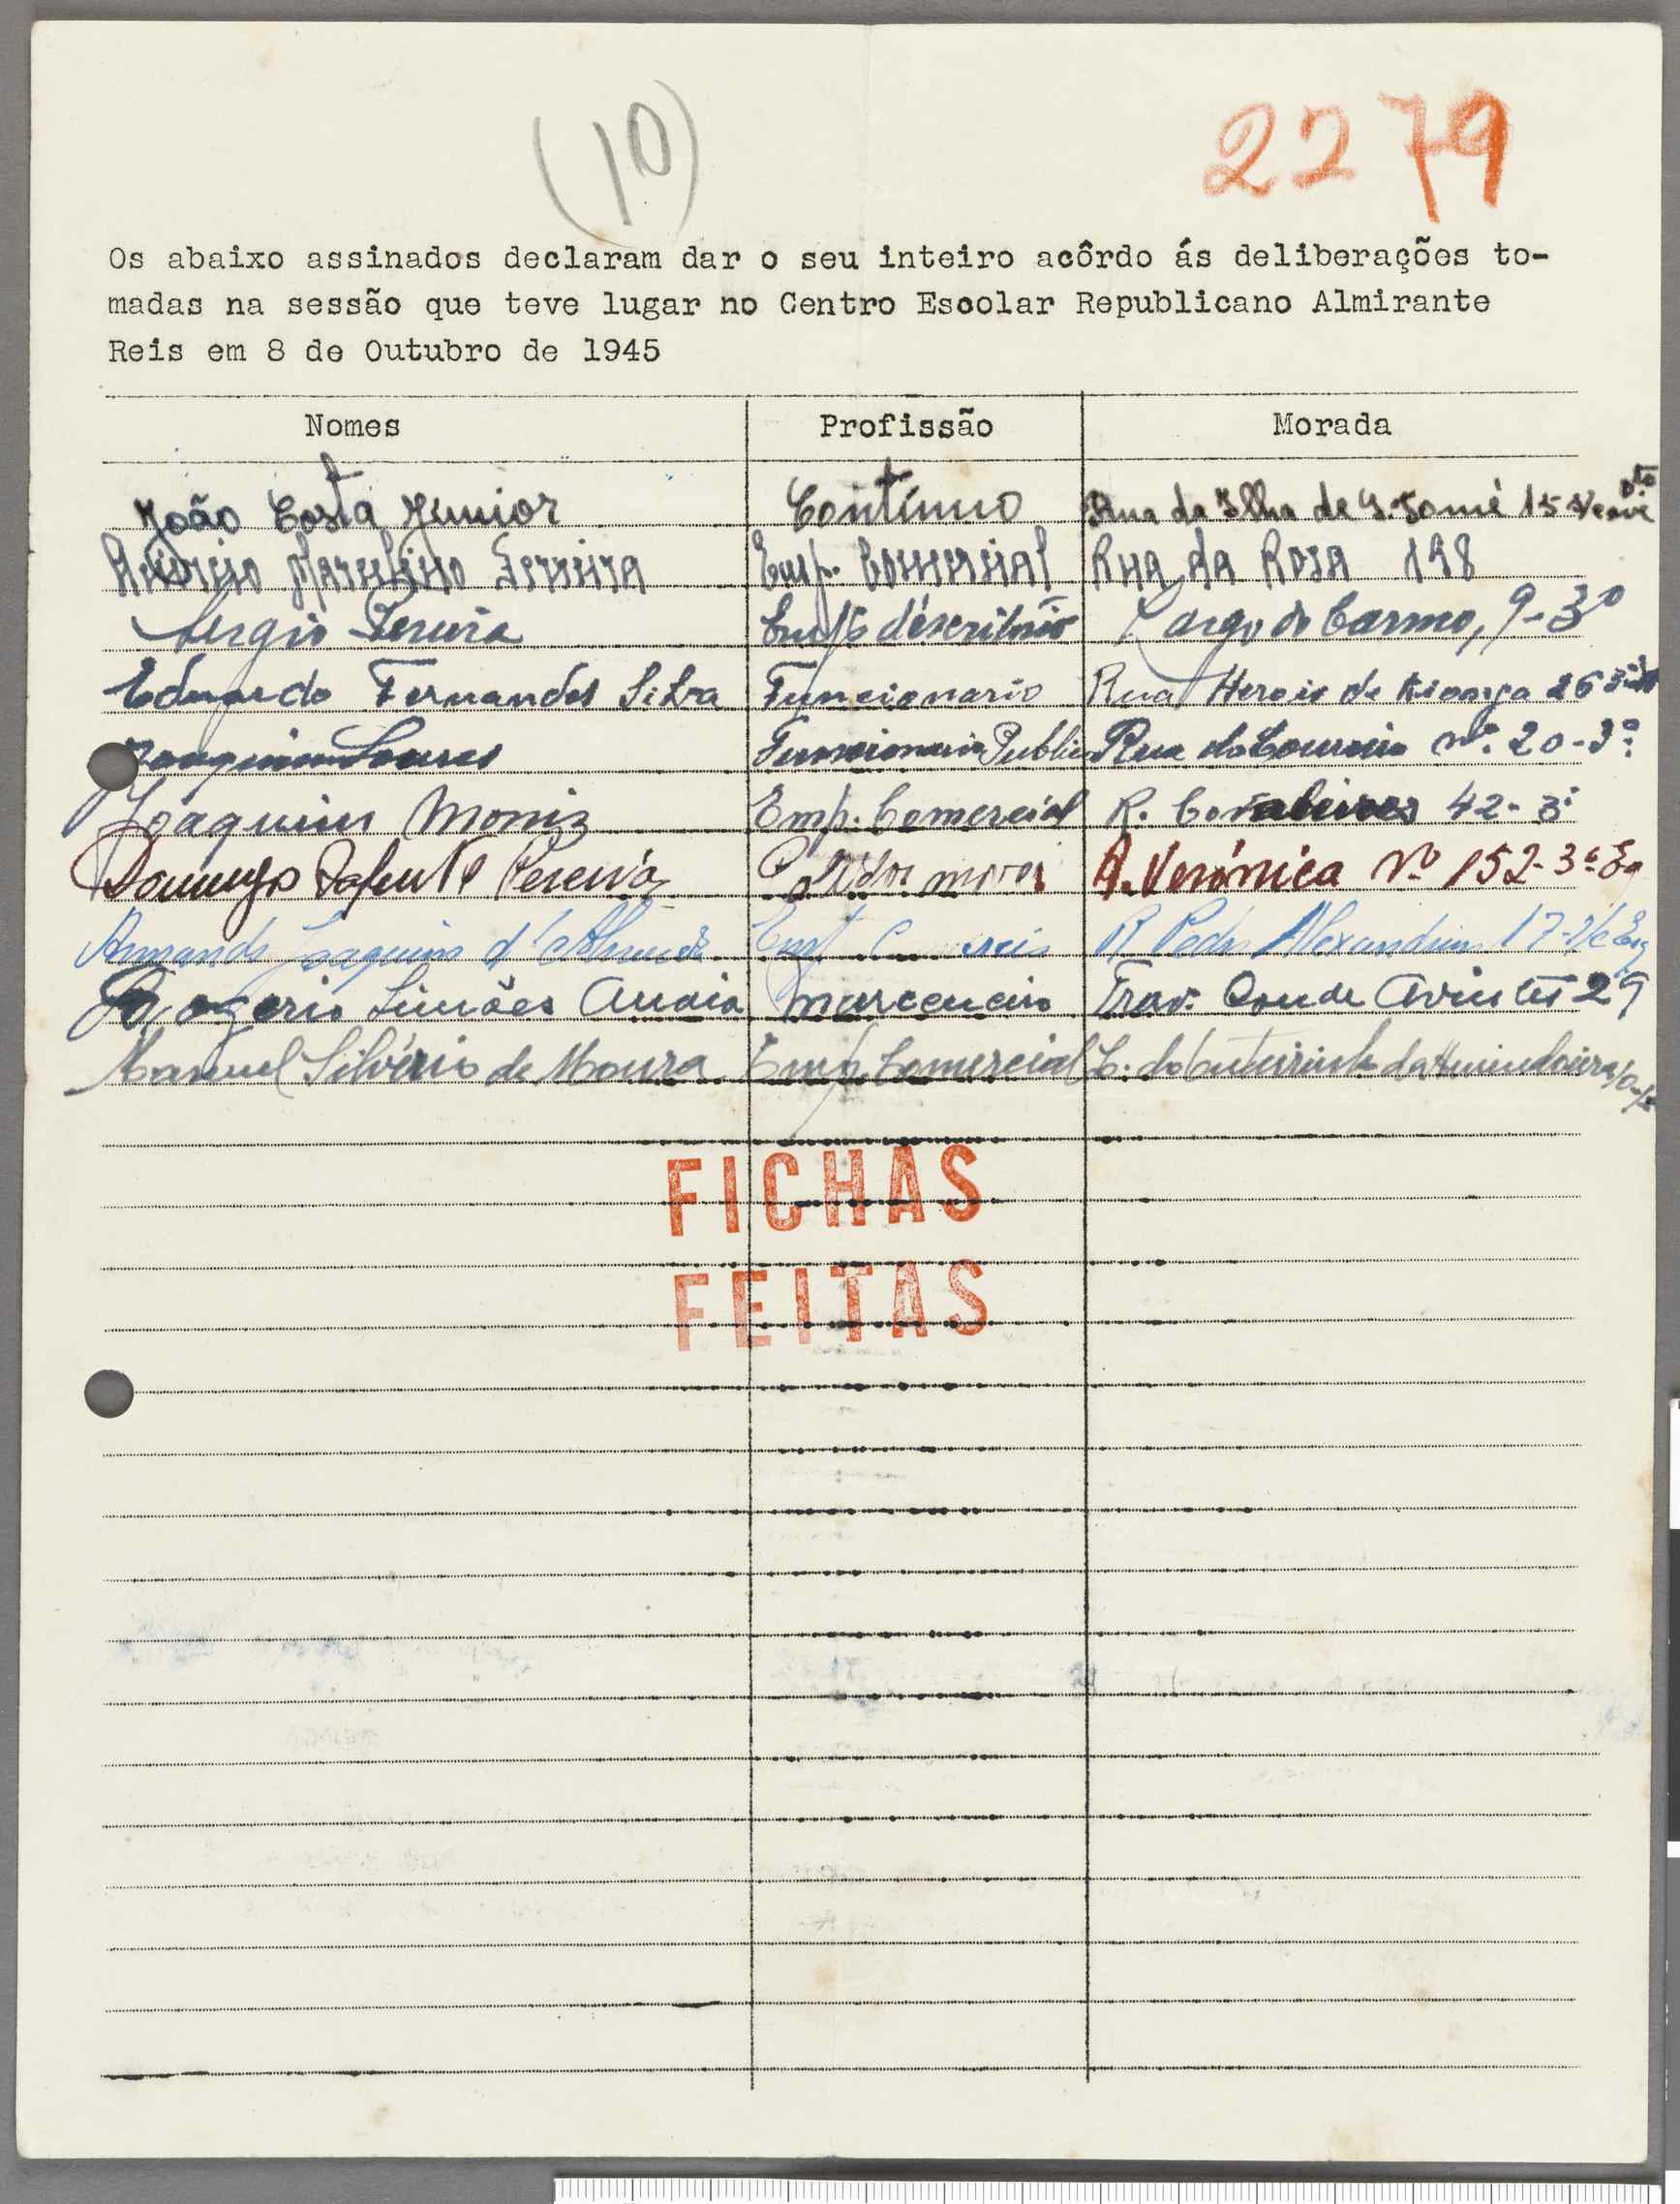 (10)
2279
Os abaixo assinados declaram dar o seu inteiro acôrdo ás deliberações to-
madas na sessão que teve lugar no Centro Escolar Republicano Almirante
Reis em 8 de Outubro de 1945
Nomes Profissão Morada
João Costa Junior Contínuo Rua da Ilha de S. Tomé 15
Marcelino Ferreira Emp. Comercial Rua da Rosa 198
Sergio Pereira Largo do Carmo, 9-3º
Eduardo Fernandes Silva Funcionario Rua Herois de 26
Joaquim Soares Funcionario Publico Rua do Loureiro nº. 20-3º.
Joaquim Moniz Emp. Comercial R. 42-3º
Domingos Pereira Polidor moveis R. Verónica Nº 152-3º Eq
Armando Joaquim d'Almeida R Pedro Alexandrino 17-
Rogerio Simões Anaia marceneiro Trav. Conde Avintes 29
Manuel Silvério de Moura Emp. Comercial C. do
FICHAS
FEITAS